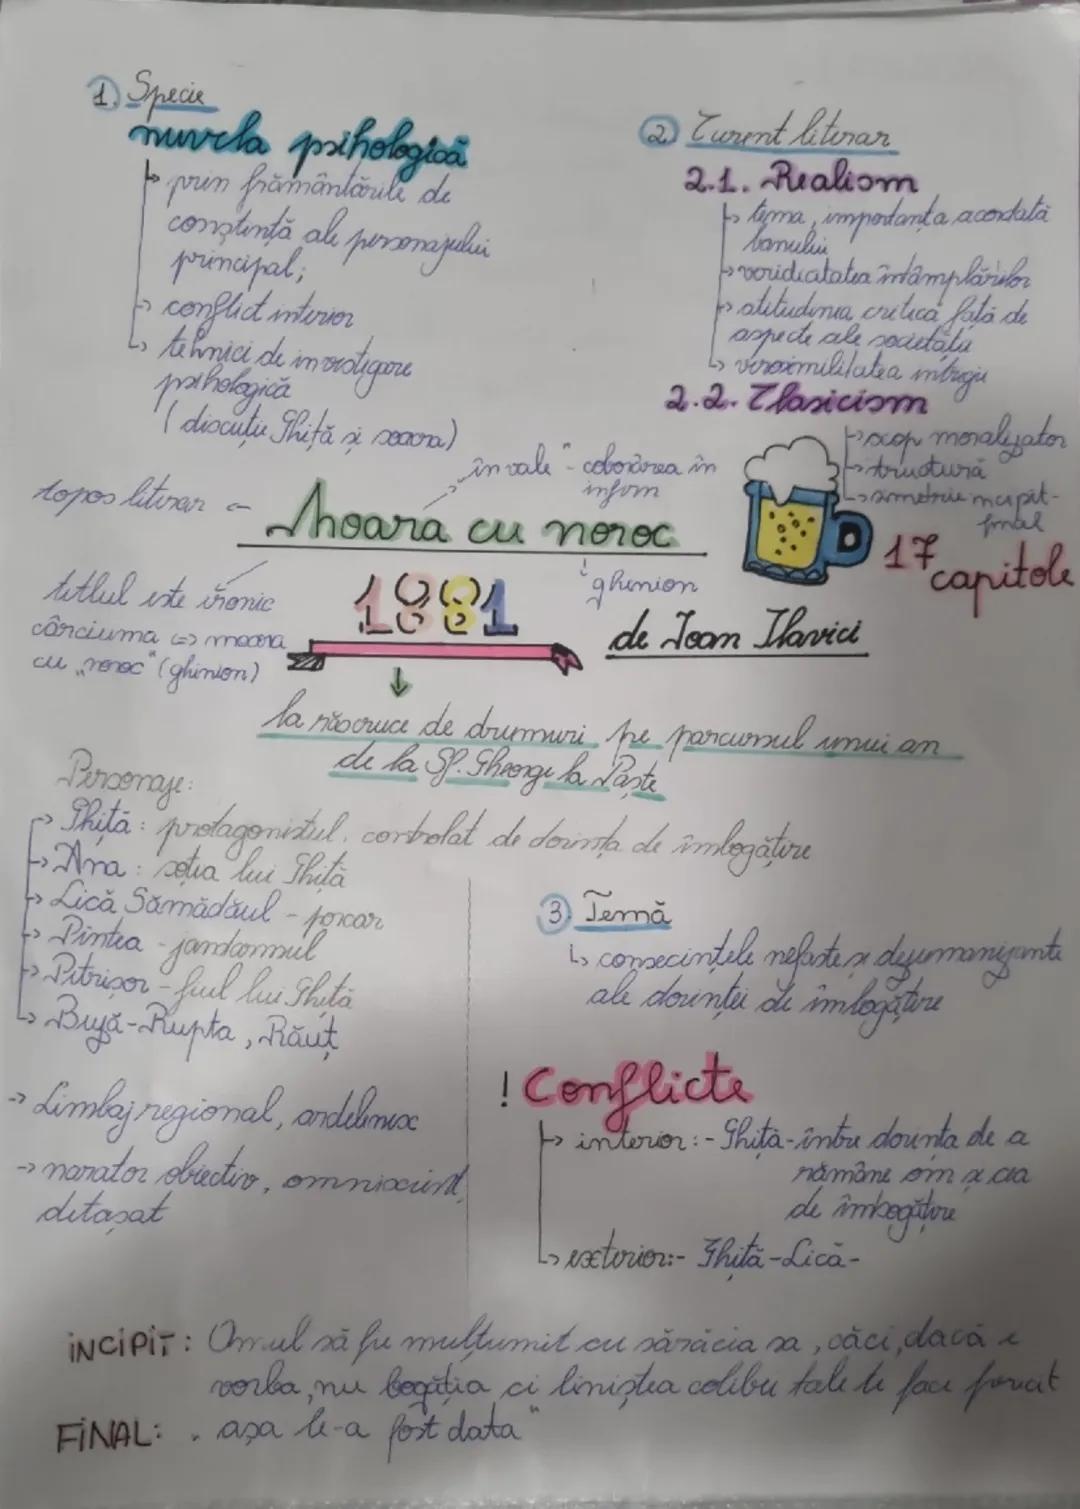 1. Specie
nuvela psihologică
prin frământările de
conștință ale personajului
principal;
conflict interior
tehnici de investigare
psihologică
(discuție Ghiță și soacra)
2. Curent literar
2.1. Realism
tema, importanța acordată
banului
veridicitatea întâmplărilor
atitudinea critică față de
aspecte ale societății
verosimilitatea intrigii
2.2. Clasicism
scop moralizator
structură
simetrie incipit-
final
topos literar
"în vale" - coborârea în
infern
Moara cu noroc
ghinion
17
capitole
titlul este ironic
cârciuma => moara
cu "noroc" (ghinion)
1881
de Ioan Slavici
la răscruce de drumuri pe parcursul unui an
de la Sf. Gheorge la Paște
Personaje:
Ghiță: protagonistul, controlat de dorința de îmbogățire
Ana: soția lui Ghiță
Lică Sămădăul - porcar
Pintea - jandarmul
Petrișor - fiul lui Ghiță
Buză-Rupta, Răuț
3 Temă
consecințele nefaste și dezumanizante
ale dorinței de îmbogățire
-> Limbaj regional, ardelenesc
-> narator obiectiv, omniscient,
detașat
! Conflicte
interior: - Ghiță - între dorința de a
rămâne om și cea
de îmbogățire
exterior: - Ghiță - Lică -
INCIPIT: Omul să fie mulțumit cu sărăcia sa, căci, dacă e
vorba, nu bogăția ci liniștea colibei tale te face fericit
FINAL: "așa le-a fost data"